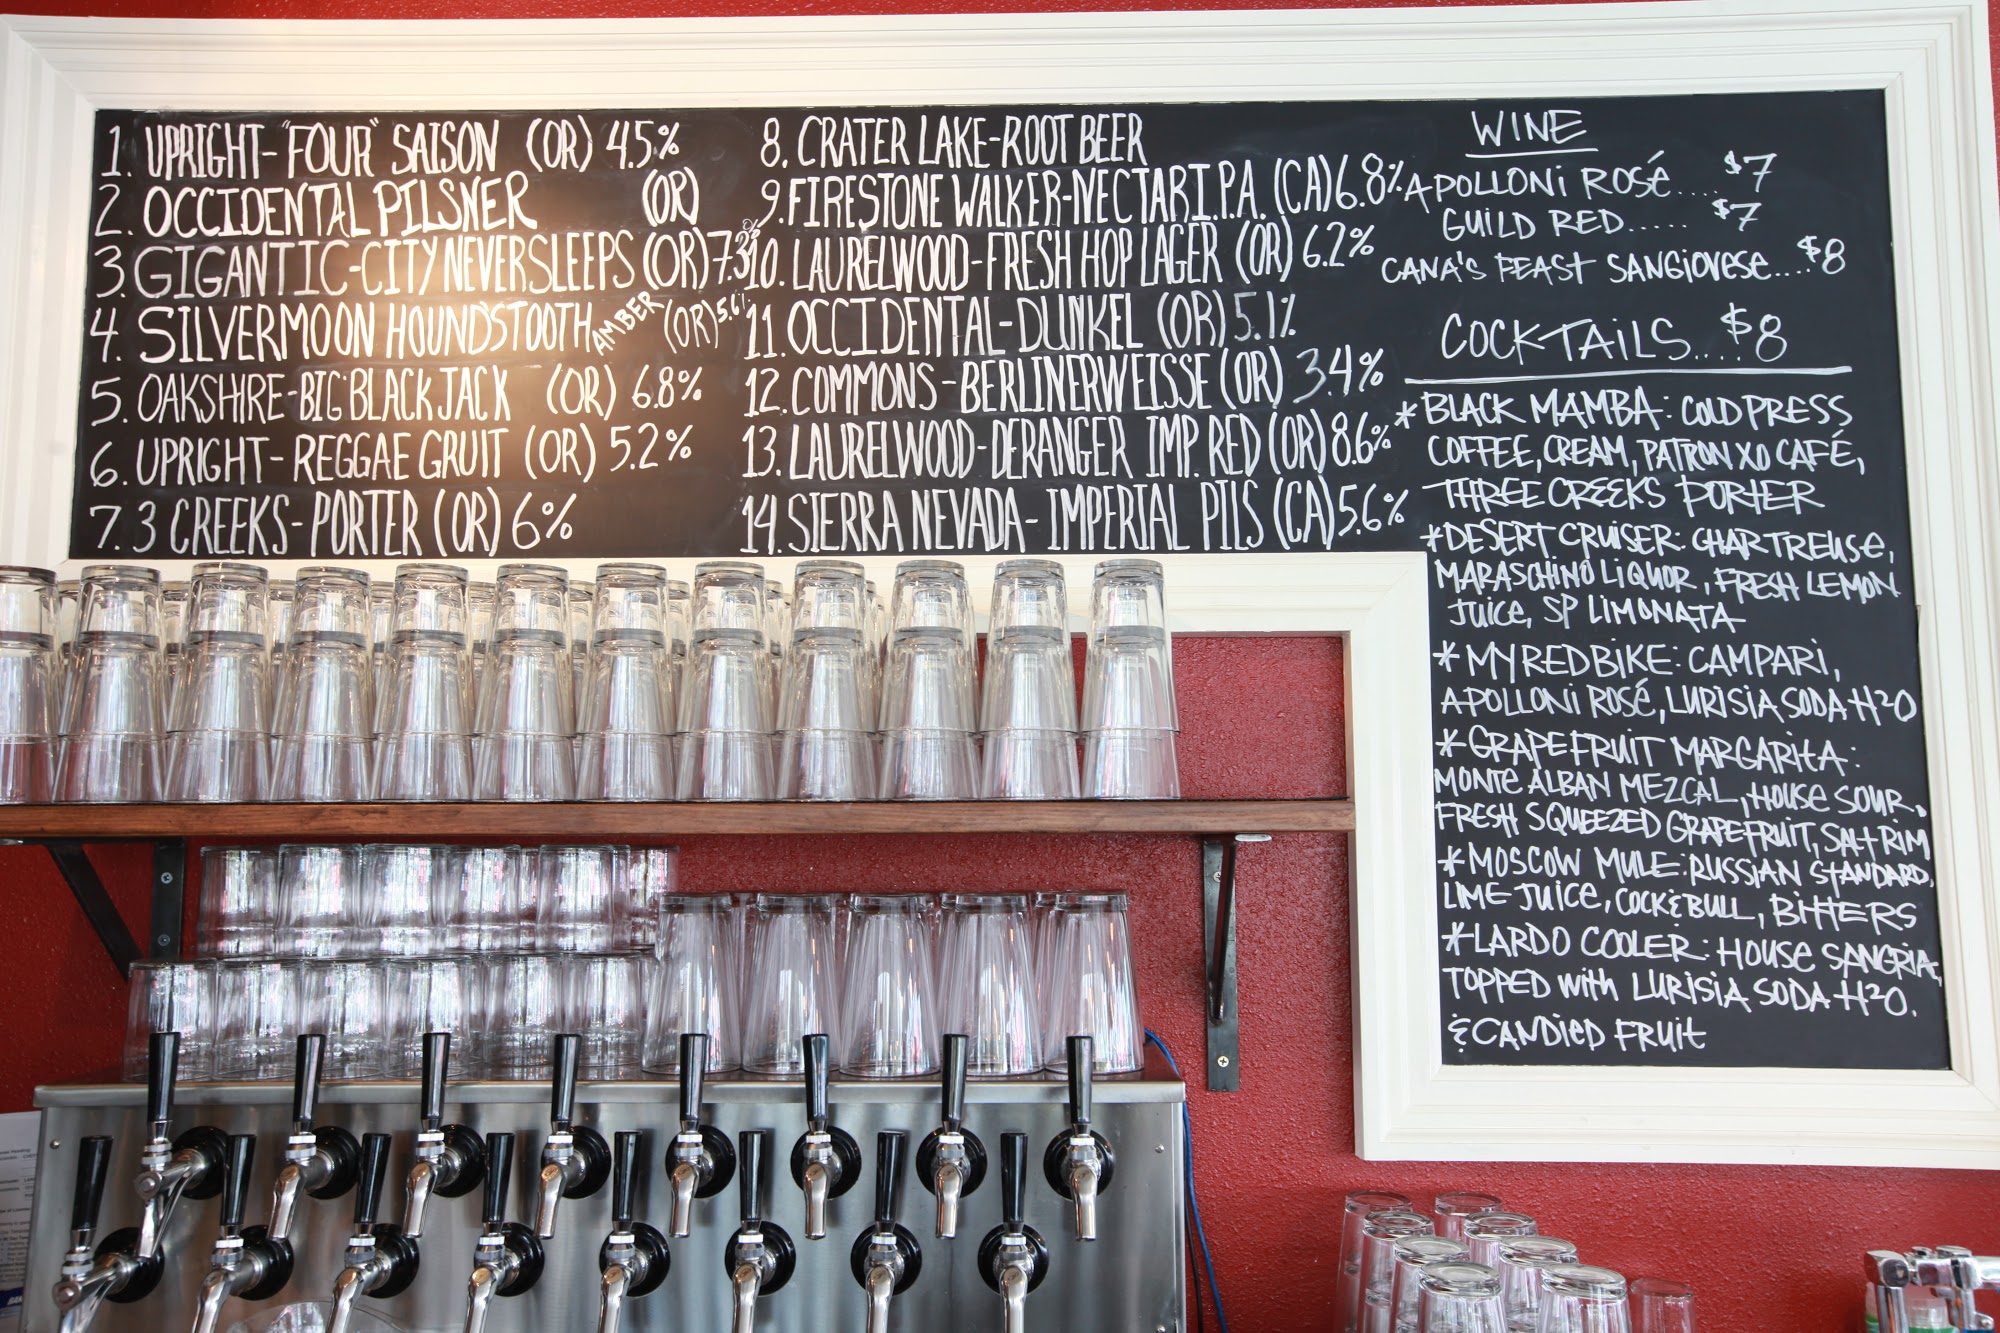 1. UPRIGHT-"FOUR" SAISON (OR) 4.5%
2. OCCIDENTAL PILSNER (OR)
3. GIGANTIC-CITY NEVER SLEEPS (OR) 7.3%
4. SILVERMOON HOUNDSTOOTH AMBER (OR) 5.6%
5. OAKSHIRE-BIG BLACK JACK (OR) 6.8%
6. UPRIGHT-REGGAE GRUIT (OR) 5.2%
7. 3 CREEKS-PORTER (OR) 6%
8. CRATER LAKE-ROOT BEER
9. FIRESTONE WALKER-NECTAR I.P.A. (CA) 6.8%
10. LAURELWOOD-FRESH HOP LAGER (OR) 6.2%
11. OCCIDENTAL-DUNKEL (OR) 5.1%
12. COMMONS-BERLINERWEISSE (OR) 3.4%
13. LAURELWOOD-DERANGER IMP. RED (OR) 8.6%
14. SIERRA NEVADA-IMPERIAL PILS (CA) 5.6%
WINE
APOLLONI ROSÉ.... $7
GUILD RED..... $7
CANA'S FEAST SANGIOVESE.... $8
COCKTAILS.... $8
* BLACK MAMBA: COLD PRESS
COFFEE, CREAM, PATRON XO CAFÉ,
THREE CREEKS PORTER
* DESERT CRUISER: CHARTREUSE,
MARASCHINO LIQUOR, FRESH LEMON
JUICE, SP LIMONATA
* MY RED BIKE: CAMPARI,
APOLLONI ROSÉ, LURISIA SODA H2O
* GRAPEFRUIT MARGARITA:
MONTE ALBAN MEZCAL, HOUSE SOUR,
FRESH SQUEEZED GRAPEFRUIT, SALT RIM
* MOSCOW MULE: RUSSIAN STANDARD,
LIME JUICE, COCK & BULL, BITTERS
* LARDO COOLER: HOUSE SANGRIA,
TOPPED WITH LURISIA SODA H2O.
& CANDIED FRUIT